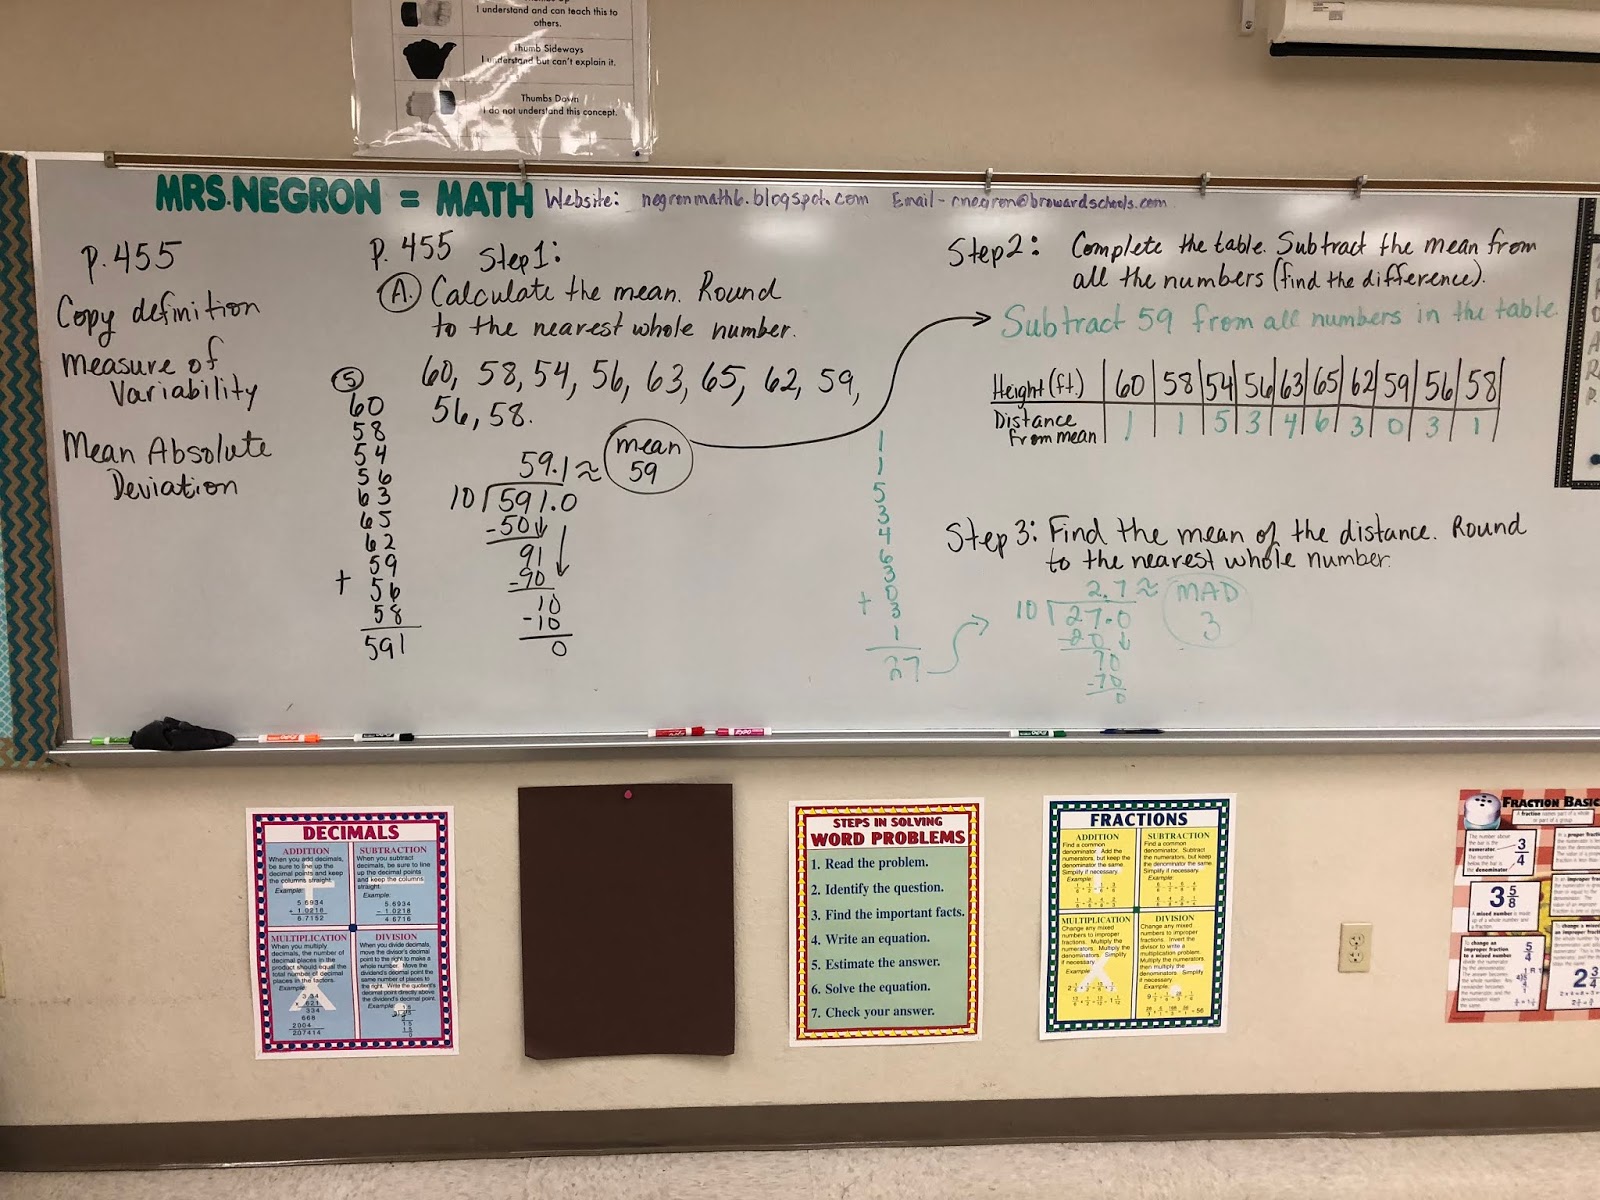 I understand and can teach this to
others.
Thumb Sideways
I understand but can't explain it.
Thumbs Down
I do not understand this concept.
MRS. NEGRON = MATH Website: negronmath6.blogspot.com Email - cnegron@browardschools.com
P. 455
Copy definition
Measure of
Variability
Mean Absolute
Deviation
P. 455 Step 1:
A. Calculate the mean. Round
to the nearest whole number.
60, 58, 54, 56, 63, 65, 62, 59,
56, 58.
5
60
58
54
56
63
65
62
59
+ 56
58
591
59.1 ≈
mean
59
10 591.0
-50
91
-90
10
-10
0
Step 2: Complete the table. Subtract the mean from
all the numbers (find the difference).
Subtract 59 from all numbers in the table.
Height (ft.) 60 58 54 56 63 65 62 59 56 58
Distance
from mean 1 1 5 3 4 6 3 0 3 1
1
1
5
3
4
6
3
0
+ 3
1
27
Step 3: Find the mean of the distance. Round
to the nearest whole number.
2.7 ≈ MAD
3
10 27.0
-20
70
-70
0
DECIMALS
ADDITION
When you add decimals,
be sure to line up the
decimal points and keep
the columns straight.
Example:
5.6934
+ 1.0218
6.7152
SUBTRACTION
When you subtract
decimals, be sure to line
up the decimal points
and keep the columns
straight.
Example:
5.6934
- 1.0218
4.6716
MULTIPLICATION
When you multiply
decimals, the number of
decimal places in the
product should equal the
total number of decimal
places in the factors.
Example:
3.34
x .621
334
668
2004
2.07414
DIVISION
When you divide decimals,
move the divisor's decimal
point to the right to make a
whole number. Move the
dividend's decimal point the
same number of places to
the right. Write the quotient's
decimal point directly above
the dividend's decimal point.
Example:
STEPS IN SOLVING
WORD PROBLEMS
1. Read the problem.
2. Identify the question.
3. Find the important facts.
4. Write an equation.
5. Estimate the answer.
6. Solve the equation.
7. Check your answer.
FRACTIONS
ADDITION
Find a common
denominator. Add the
numerators, but keep the
denominator the same.
Simplify if necessary.
Example:
SUBTRACTION
Find a common
denominator. Subtract
the numerators, but keep
the denominator the same.
Simplify if necessary.
Example:
MULTIPLICATION
Change any mixed
numbers to improper
fractions. Multiply the
numerators, then multiply
the denominators. Simplify
if necessary.
Example:
DIVISION
Change any mixed
numbers to improper
fractions. Invert the
divisor to write a
multiplication problem.
Multiply the numerators,
then multiply the
denominators. Simplify
if necessary.
Example:
FRACTION BASIC
A fraction names part of a whole
or part of a group.
The number above
the bar is the
numerator.
The number
below the bar is
the denominator.
3/4
3 5/8
A mixed number is made
up of a whole number and
a fraction.
To change an
improper fraction
to a mixed number